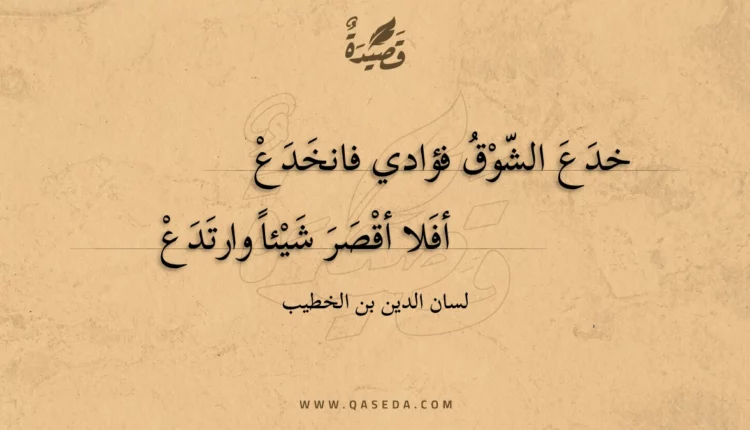 قَصِيدَةٌ
خدَعَ الشّوْقُ فؤادي فانخَدَعْ
أفَلا أقْصَرَ شَيْئاً وارتَدَعْ
لسان الدين بن الخطيب
WWW.QASEDA.COM